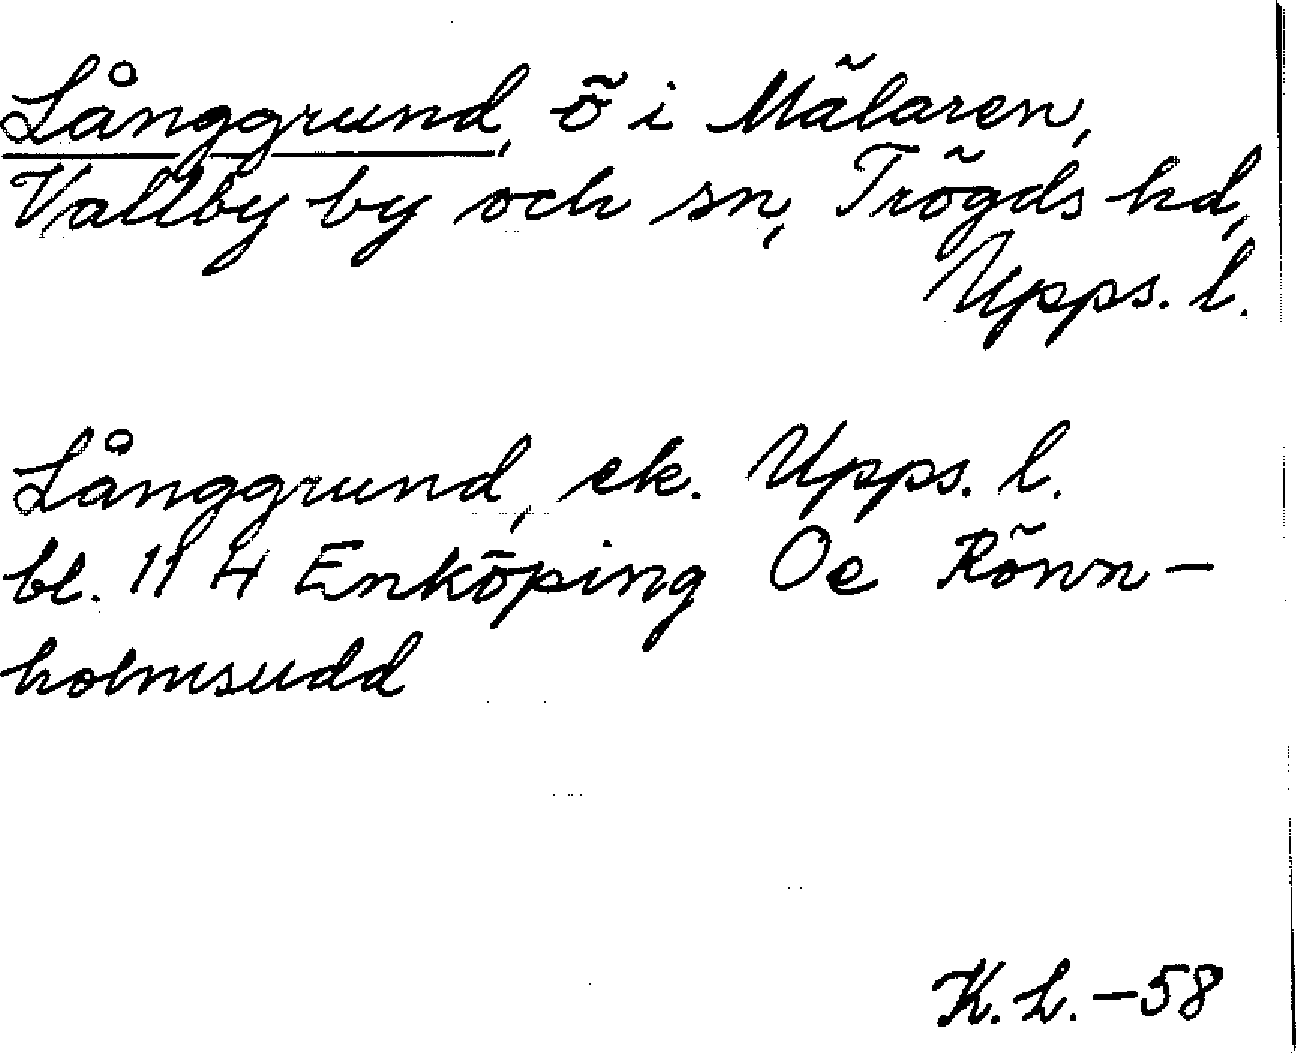 Långgrund, ö i Mälaren,
Vallby by och sn, Trögds hd,
Upps. l.
Långgrund, ek. Upps. l.
bl. 114 Enköping Oe Rönn-
holmsudd
K.L. -58